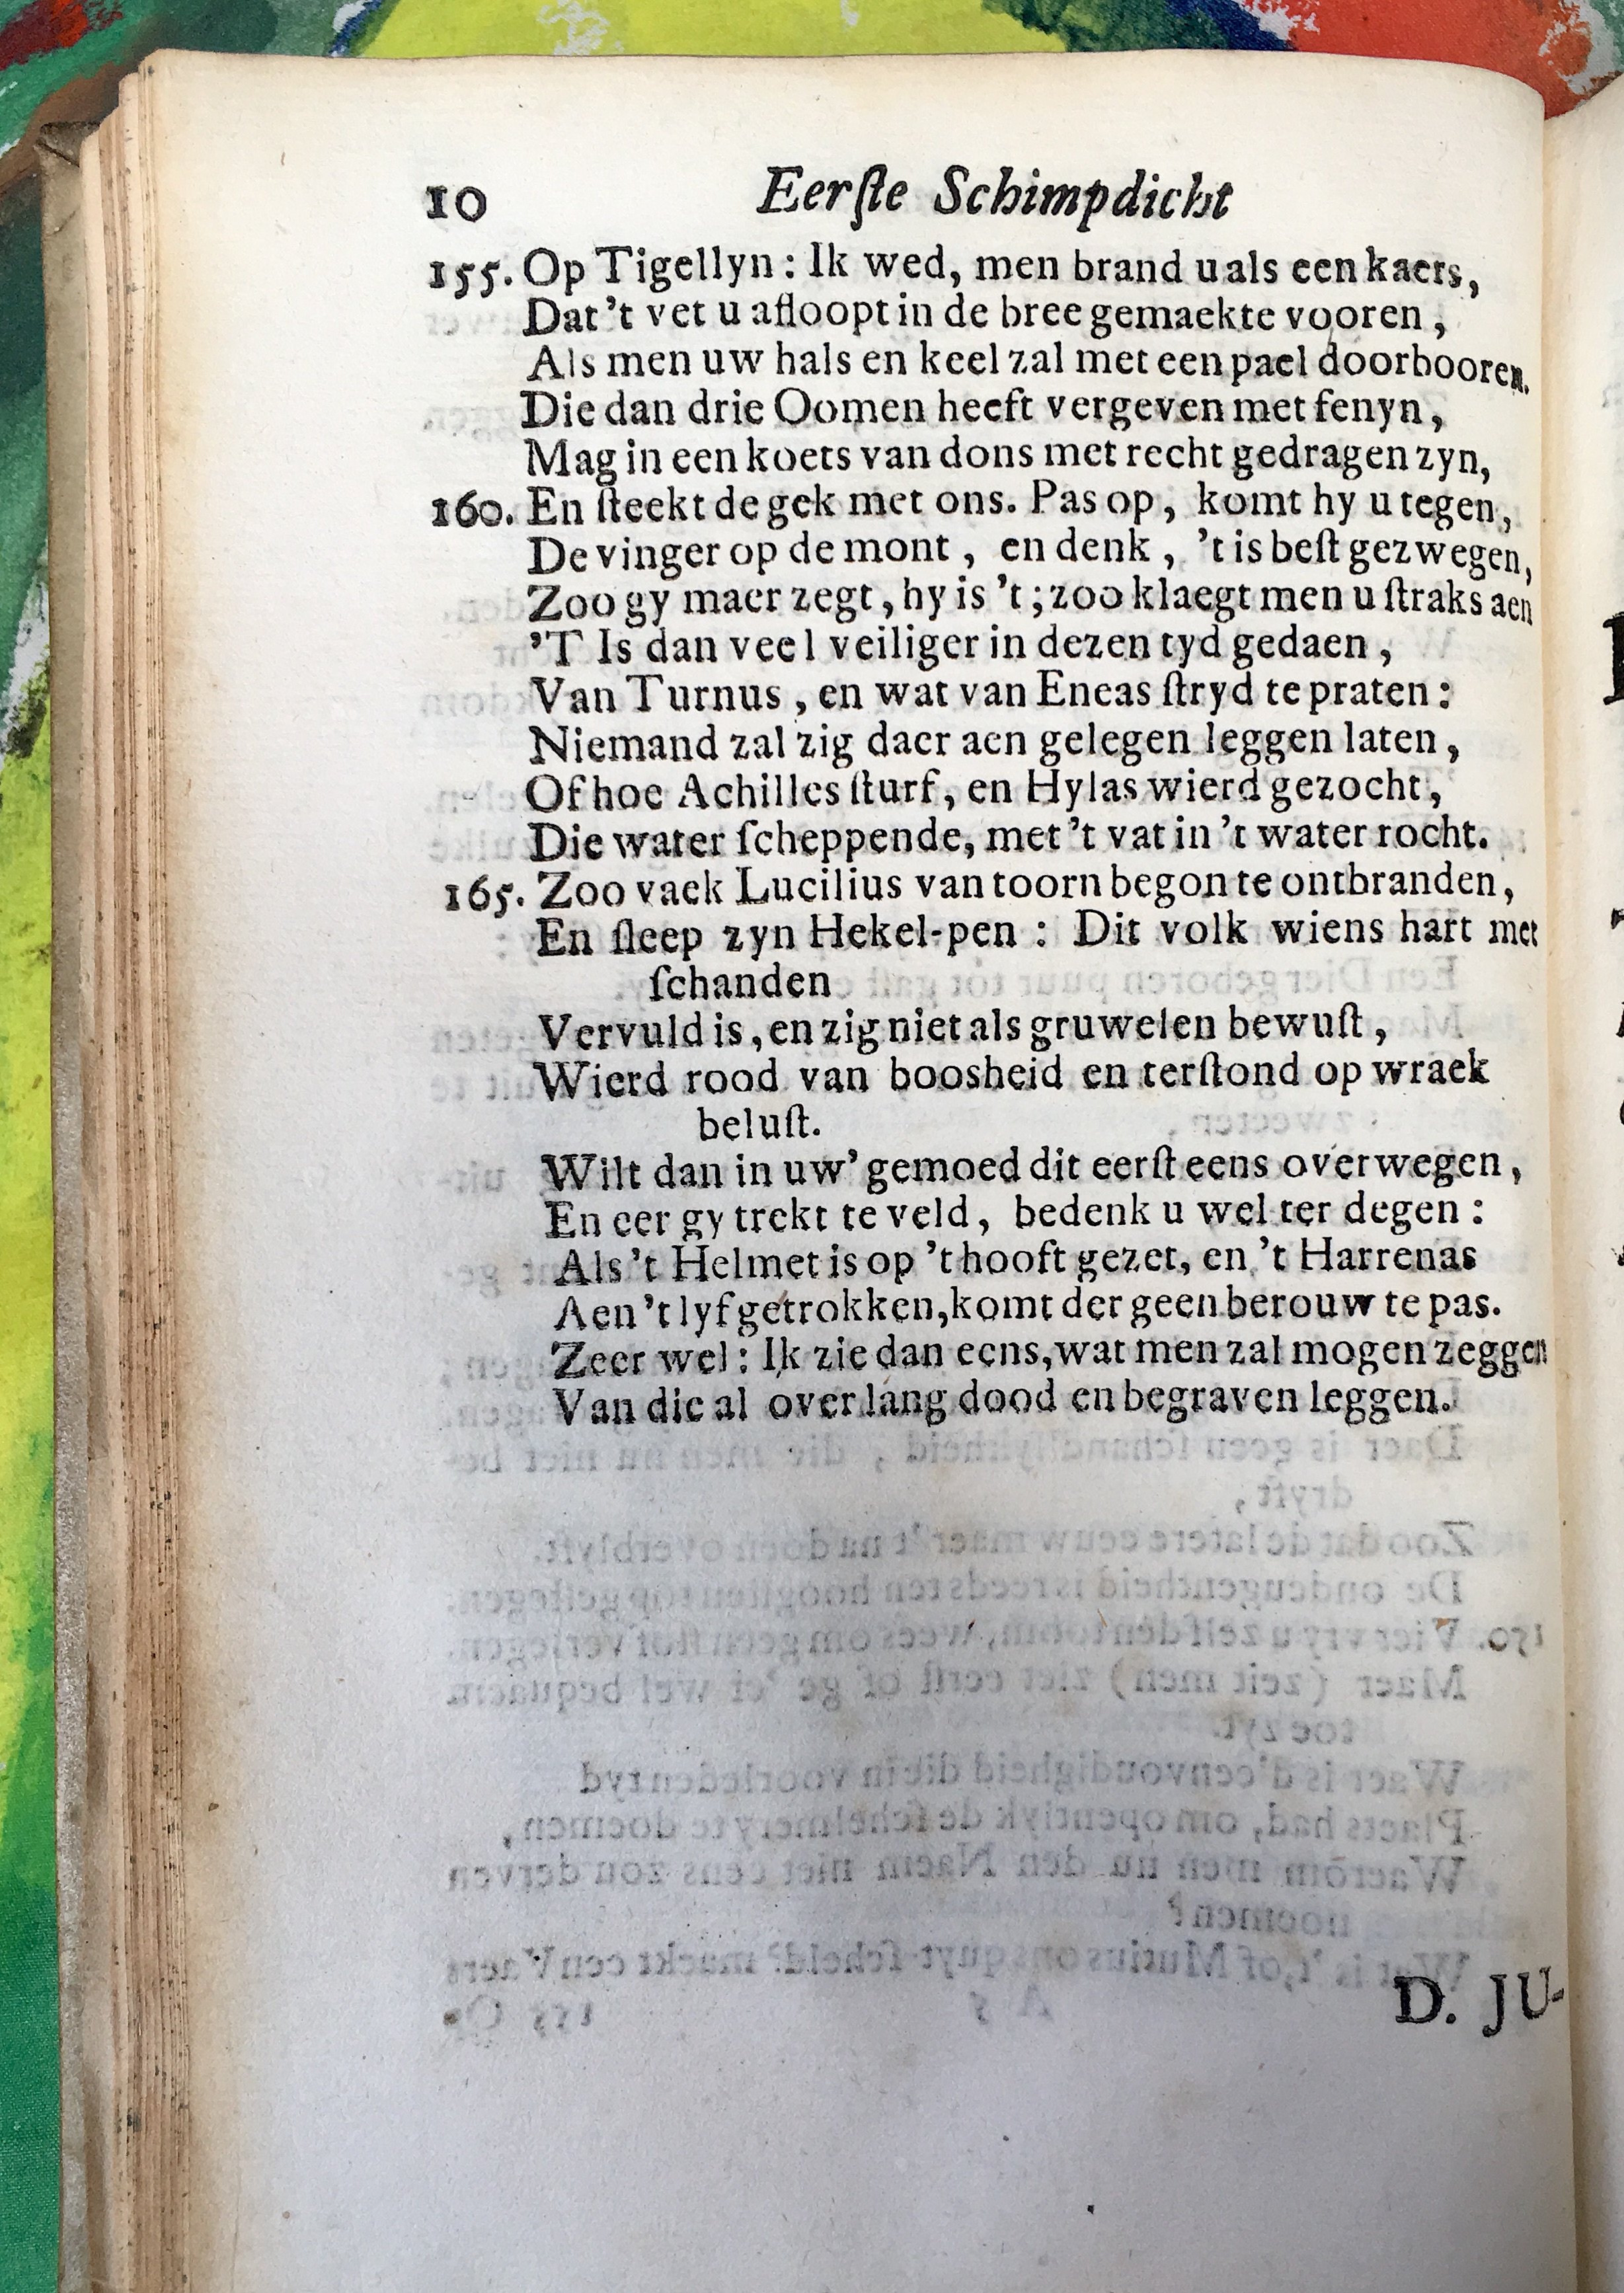 10 Eerſte Schimpdicht
155. Op Tigellyn: Ik wed, men brand u als een kaers,
Dat 't vet u afloopt in de bree gemaekte vooren,
Als men uw hals en keel zal met een pael doorbooren.
Die dan drie Oomen heeft vergeven met fenyn,
Mag in een koets van dons met recht gedragen zyn,
160. En ſteekt de gek met ons. Pas op, komt hy u tegen,
De vinger op de mont, en denk, 't is beſt gezwegen,
Zoo gy maer zegt, hy is 't; zoo klaegt men u ſtraks aen
'T Is dan veel veiliger in dezen tyd gedaen,
Van Turnus, en wat van Eneas ſtryd te praten:
Niemand zal zig daer aen gelegen leggen laten,
Of hoe Achilles ſturf, en Hylas wierd gezocht,
Die water ſcheppende, met 't vat in 't water rocht.
165. Zoo vaek Lucilius van toorn begon te ontbranden,
En ſleep zyn Hekel-pen: Dit volk wiens hart met
ſchanden
Vervuld is, en zig niet als gruwelen bewuſt,
Wierd rood van boosheid en terſtond op wraek
beluſt.
Wilt dan in uw' gemoed dit eerſt eens overwegen,
En eer gy trekt te veld, bedenk u wel ter degen:
Als 't Helmet is op 't hooft gezet, en 't Harrenas
Aen 't lyf getrokken, komt der geen berouw te pas.
Zeer wel: Ik zie dan eens, wat men zal mogen zeggen
Van die al over lang dood en begraven leggen.
D. JU-